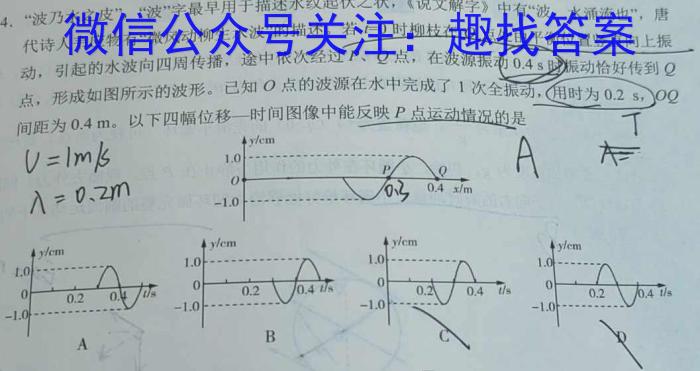 4. “波乃水之皮”，“波”字最早用于描述水纹起伏之状，《说文解字》中有“波，水涌流也”，唐
代诗人
微信公众号关注：趣找答案
动，引起的水波向四周传播，途中依次经过P、Q点，在波源振动0.4 s时振动恰好传到Q
点，形成如图所示的波形。已知O点的波源在水中完成了1次全振动，用时为0.2 s，OQ
间距为0.4 m。以下四幅位移—时间图像中能反映P点运动情况的是
T
A
A=
U=1m/s
λ=0.2m
y/cm
1.0
0
-1.0
P
0.3
Q
0.4
x/m
y/cm
1.0
0
-1.0
0.2
0.4
t/s
A
y/cm
1.0
0
-1.0
0.2
0.4
t/s
B
y/cm
1.0
0
-1.0
0.2
0.4
t/s
C
y/cm
1.0
0
-1.0
0.2
0.4
t/s
D